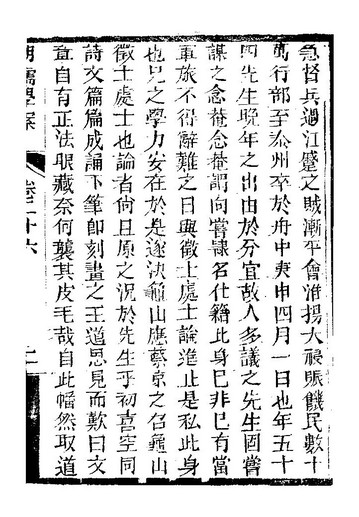 急督兵過江蹙之賊漸平會淮揚大祲賑饑民數十
萬行部至泰州卒於舟中庚申四月一日也年五十
四先生晚年之出由於分宜故人多議之先生固嘗
謀之念菴念菴謂向嘗隸名仕籍此身已非已有當
軍旅不得辭難之日與徵士處士論進止是私此身
也兄之學力安在於是遂決龜山應蔡京之召龜山
徵士處士也論者尙且原之況於先生乎初喜空同
詩文篇篇成誦下筆卽刻畫之王道思見而歎曰文
章自有正法眼藏奈何襲其皮毛哉自此幡然取道
明儒學案
卷二十六